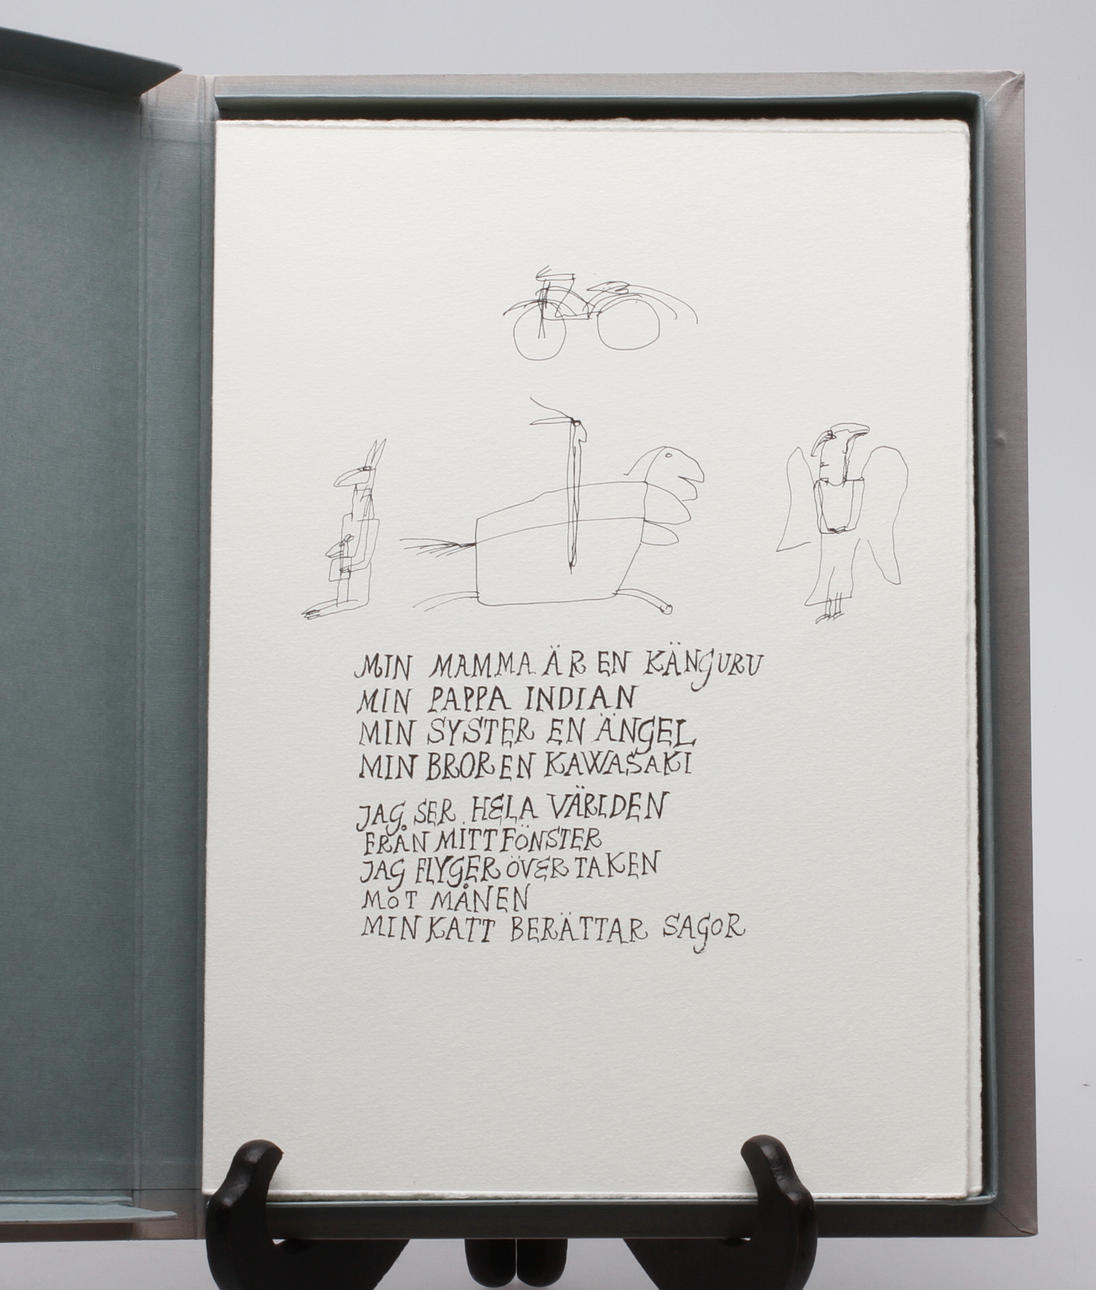 MIN MAMMA ÄR EN KÄNGURU
MIN PAPPA INDIAN
MIN SYSTER EN ÄNGEL
MIN BROR EN KAWASAKI
JAG SER HELA VÄRLDEN
FRÅN MITT FÖNSTER
JAG FLYGER ÖVER TAKEN
MOT MÅNEN
MIN KATT BERÄTTAR SAGOR